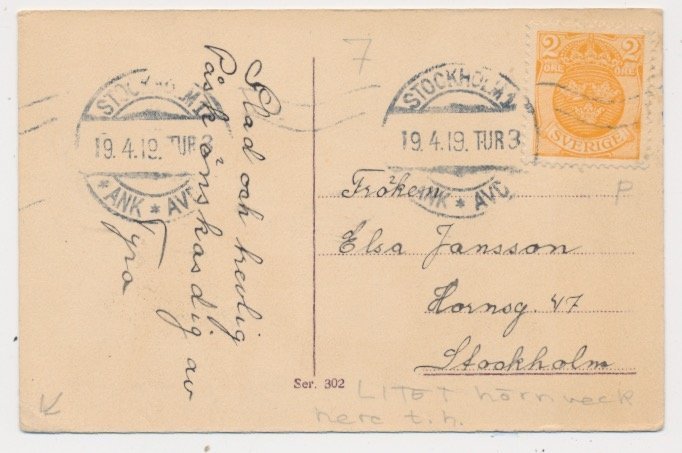 Glad och trevlig
Påsk önskas dig av
Tyra
STOCKHOLM 1
19.4.19. TUR 3
* ANK * AVG.
STOCKHOLM 1
19.4.19. TUR 3
* ANK * AVG.
2 2
ÖRE ÖRE
SVERIGE
7
P
Fröken
Elsa Jansson
Hornsg. 47
Stockholm
Ser. 302
LITET hörnveck
nere t.h.